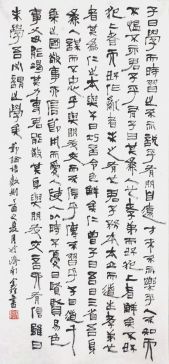 子曰學而時習之不亦說乎有朋自遠方來不亦樂乎人不知而
不慍不亦君子乎有子曰其為人也孝弟而好犯上者鮮矣不好
犯上而好作亂者未之有也君子務本本立而道生孝弟也
者其為仁之本與子曰巧言令色鮮矣仁曾子曰吾日三省吾身
為人謀而不忠乎與朋友交而不信乎傳不習乎子曰道千
乘之國敬事而信節用而愛人使民以時子夏曰賢賢易色
事父母能竭其力事君能致其身與朋友交言而有信雖曰
未學吾必謂之學矣 節論語數則